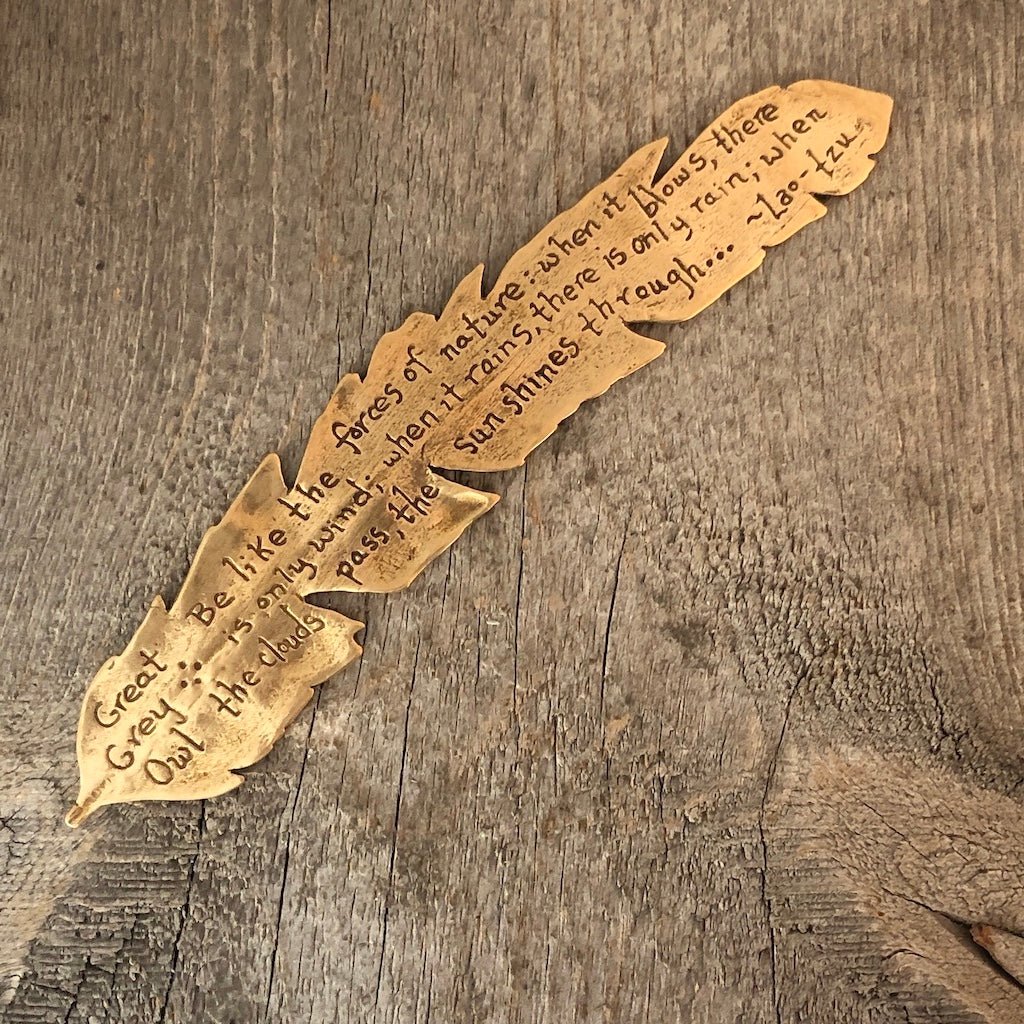 Great
Grey
Owl
Be like the forces of nature: when it blows, there
is only wind; when it rains, there is only rain; when
the clouds pass, the sun shines through...
~Lao-tzu